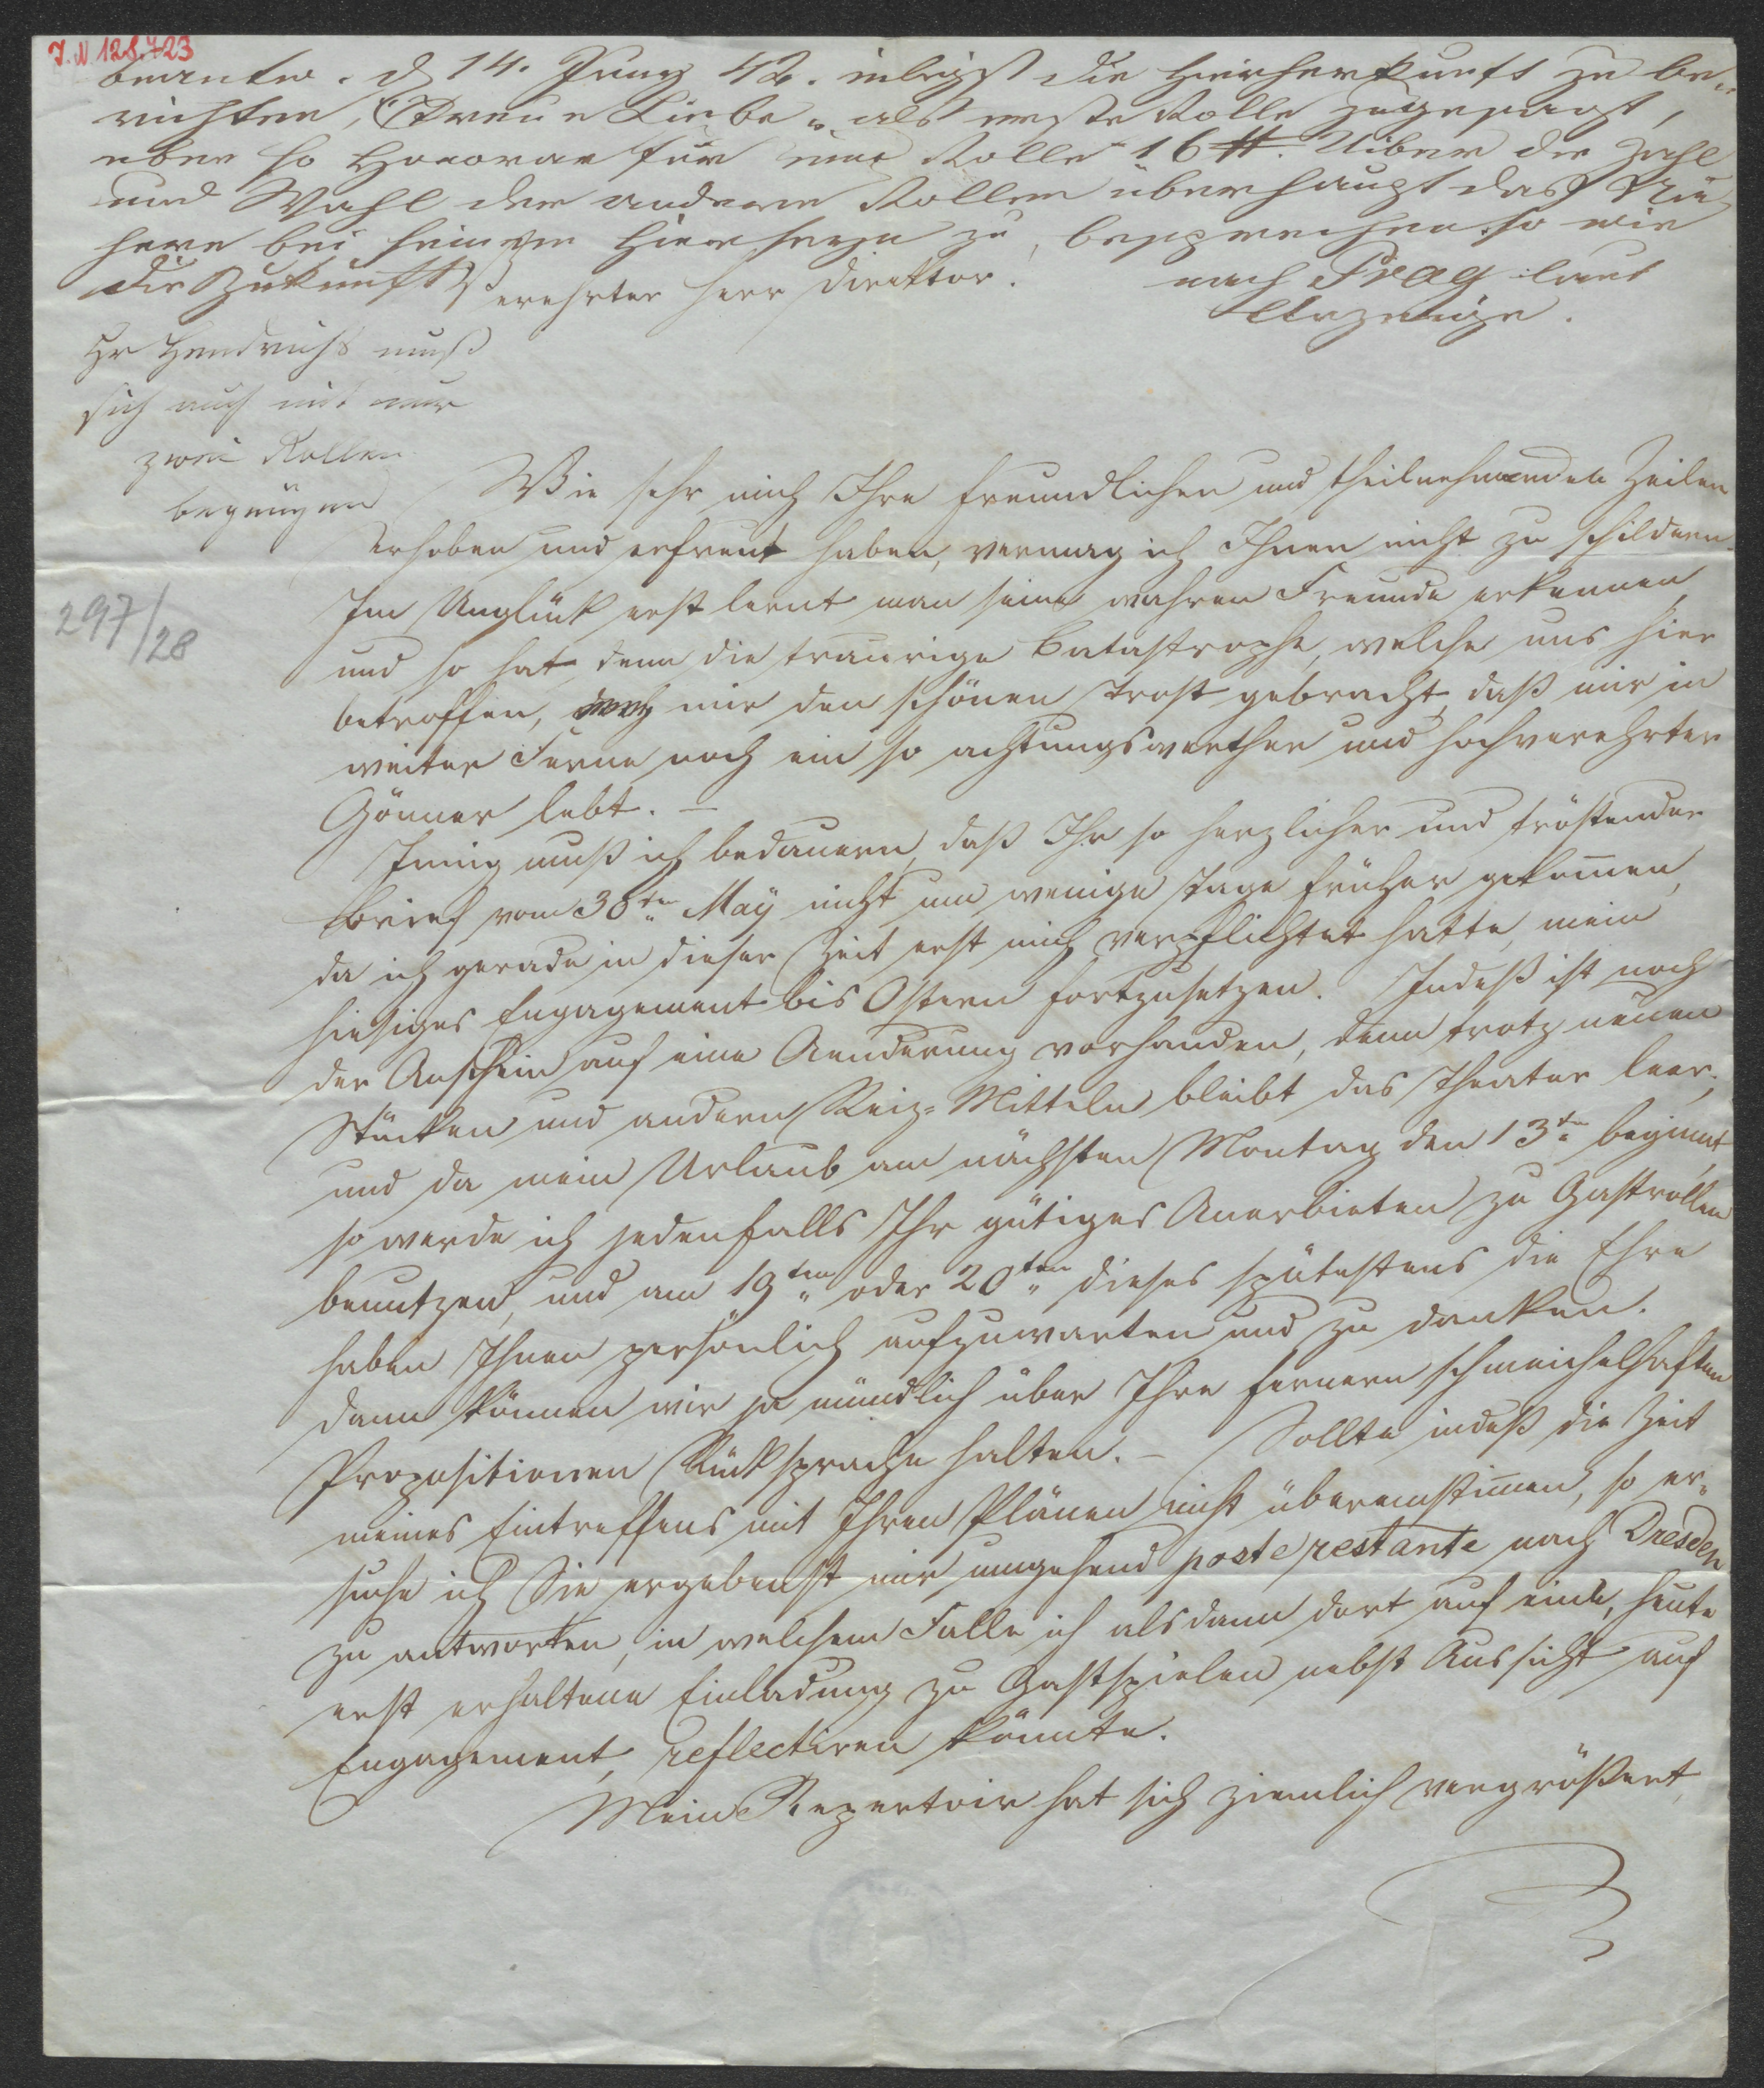 J.N 128.723
beantw. d 14. Juny 42. die Hierherkunft zu be-
richten, "Treue Liebe" als erste Rolle zugesagt,
eben so Honorar für eine Rolle 16 #. Uiber die Zahl
und Wahl der anderen Rollen überhaupt das Nä-
here bei seinem Hiersein zu besprechen so wie
die Zukunft
nach Prag laut
Anzeige.
Verehrter Herr Direktor!
Hr Hendrichs muß
sich auch mit nur
zwei Rollen
begnügen
297/28
Wie sehr mich Ihre freundlichen und theilnehmenden Zeilen
erhoben und erfreut haben, vermag ich Ihnen nicht zu schildern.
Im Unglück erst lernt man seine wahren Freunde erkennen,
und so hat denn die traurige Catastrophe, welche uns hier
betroffen, mir den schönen Trost gebracht, daß mir in
weiter Ferne noch ein so achtungswerther und hochverehrter
Gönner lebt. –
Innig muß ich bedauern, daß Ihr so herzlicher und tröstender
Brief vom 30ten May nicht um wenige Tage früher gekom̅en,
da ich gerade in dieser Zeit erst mich verpflichtet hatte, mein
hiesiges Engagement bis Ostern fortzusetzen. Indeß ist noch
der Anschein auf eine Aenderung vorhanden, denn trotz neuen
Stücken und andern Reiz-Mitteln bleibt das Theater leer;
und da mein Urlaub am nächsten Montag den 13ten beginnt,
so werde ich jedenfalls Ihr gütiges Anerbieten zu Gastrollen
benutzen, und am 19ten oder 20ten dieses spätestens die Ehre
haben Ihnen persönlich aufzuwarten und zu danken.
Dann können wir ja mündlich über Ihre fernern schmeichelhaften
Propositionen Rücksprache halten. – Sollte indeß die Zeit
meines Eintreffens mit Ihren Plänen nicht übereinstim̅en, so er-
suche ich Sie ergebenst mir umgehend poste restante nach Dresden
zu antworten, in welchem Falle ich alsdann dort auf eine, heute
erst erhaltene Einladung zu Gastspielen nebst Aussicht auf
Engagement, reflectiren könnte.
Mein Repertoir hat sich ziemlich vergrößert,